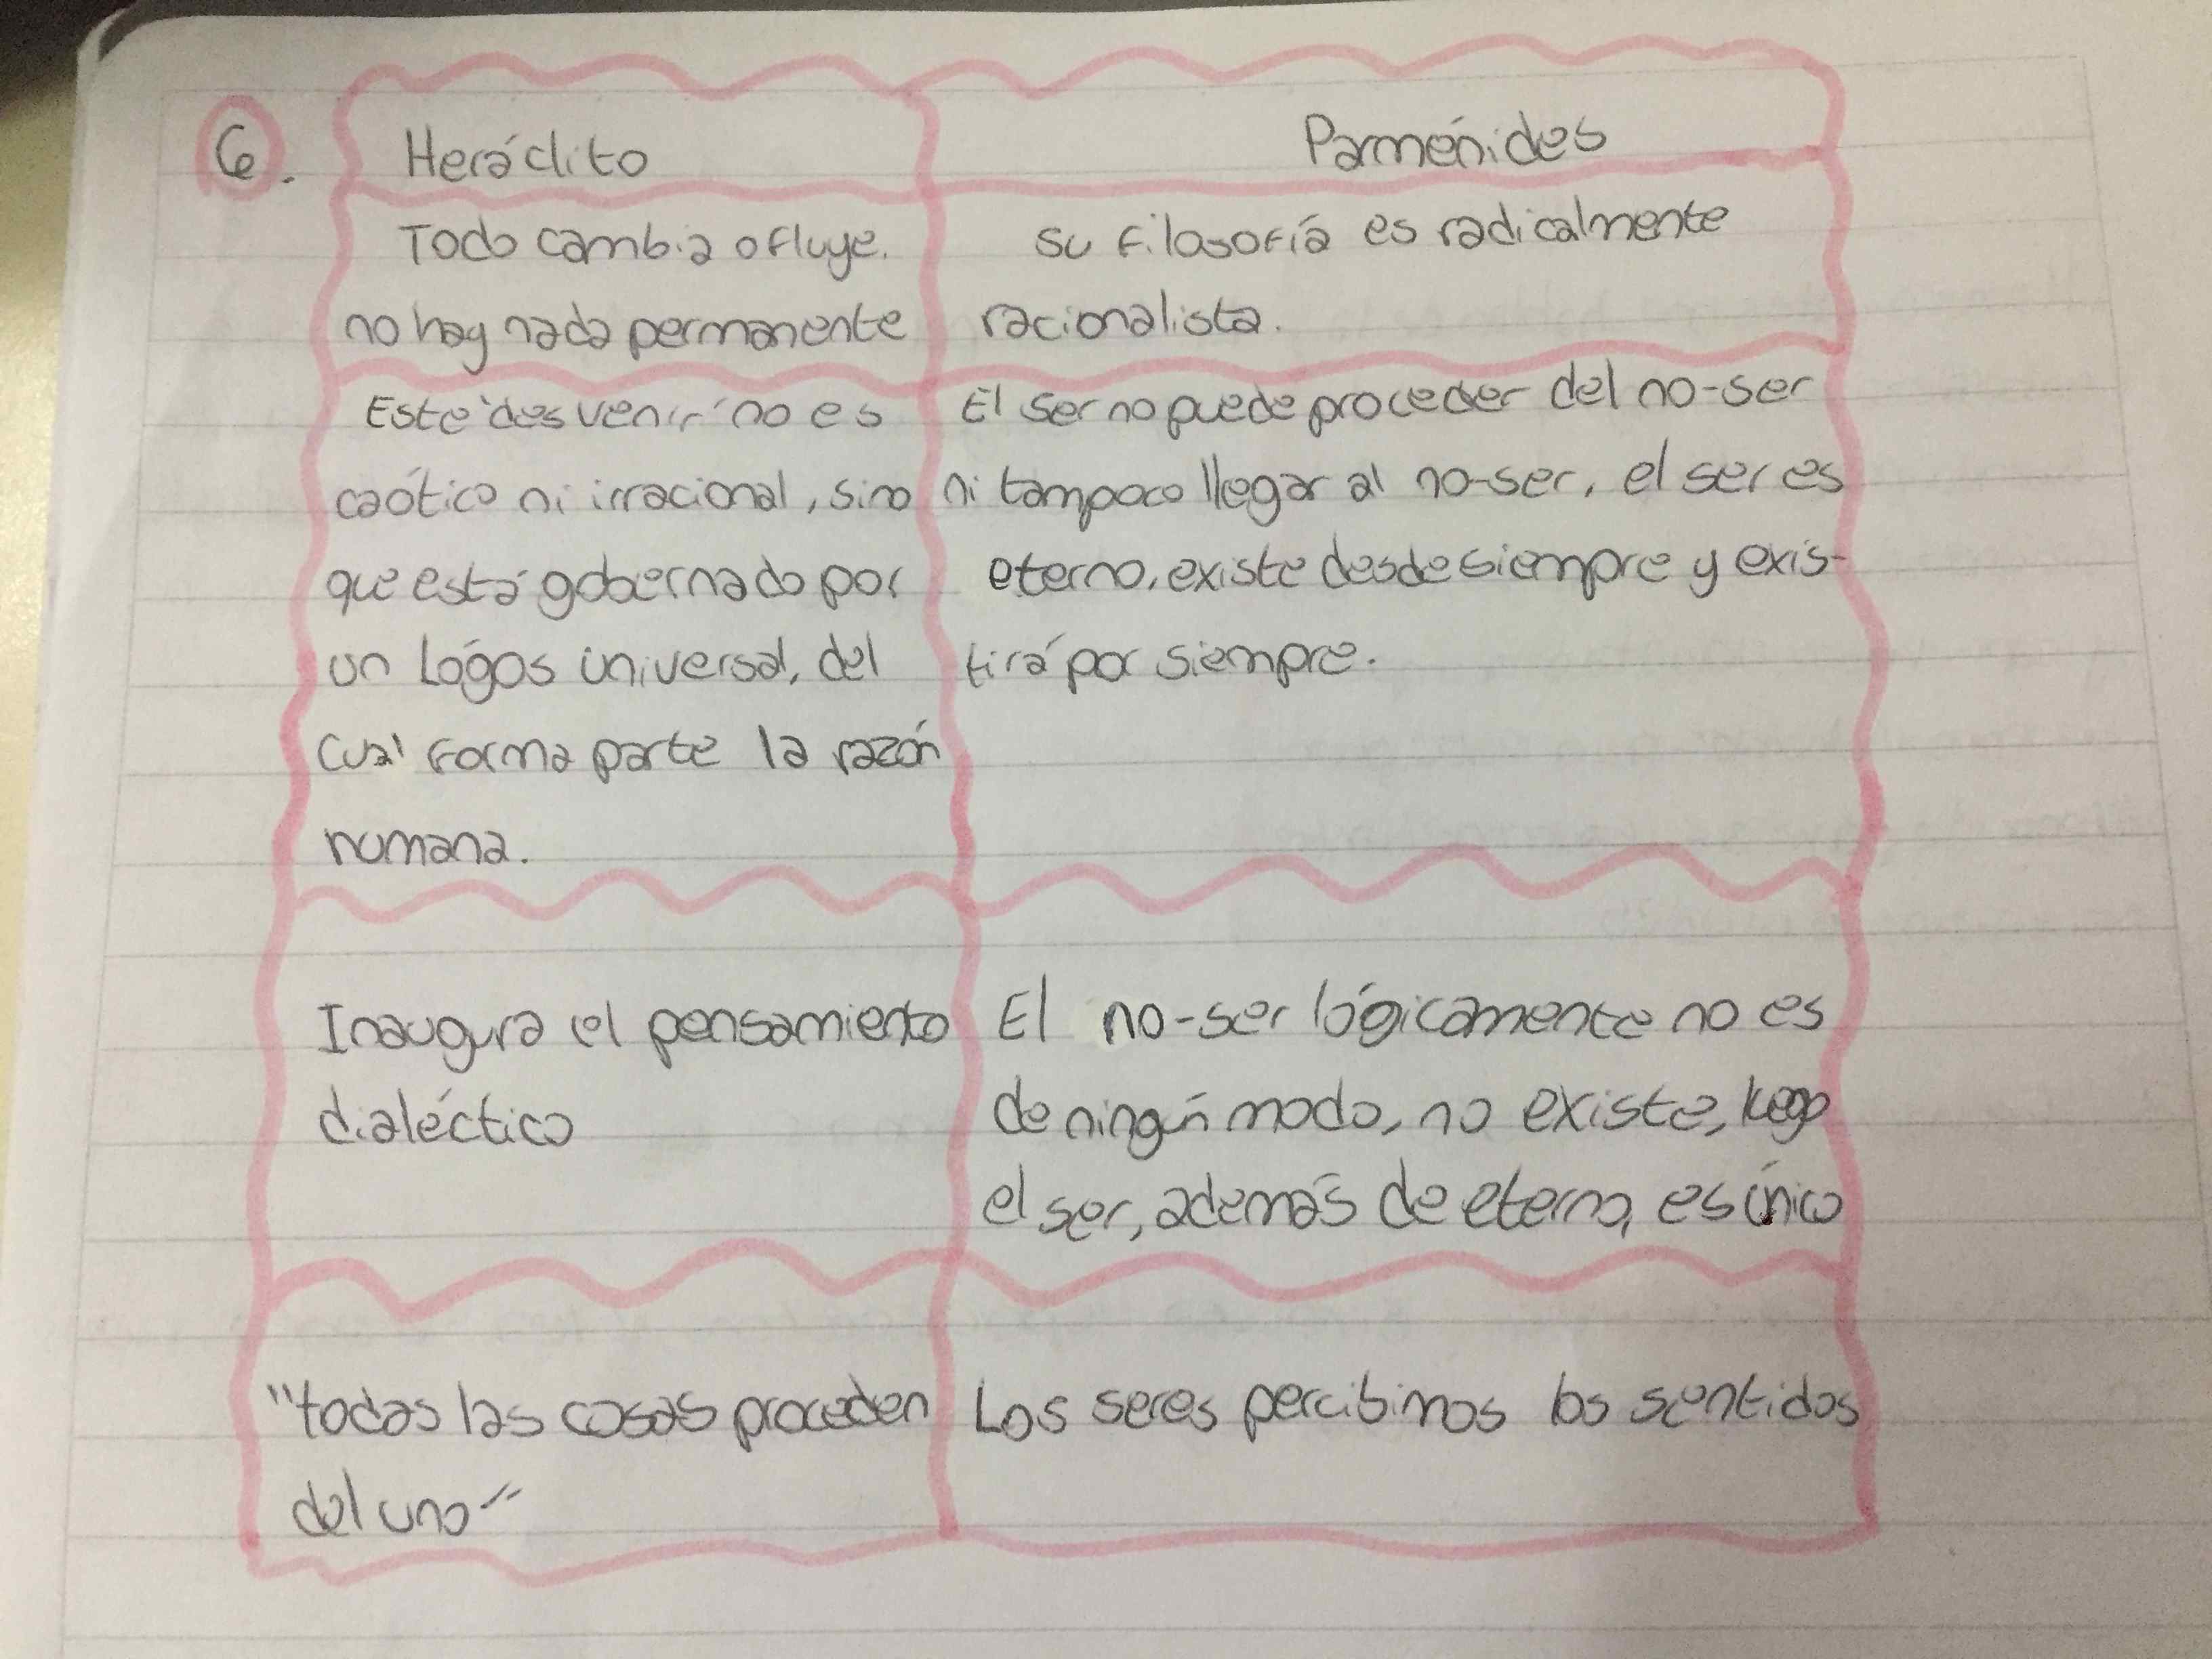 6.
Heráclito
Parménides
Todo cambia o fluye.
no hay nada permanente
su filosofía es radicalmente
racionalista.
Este "desvenir" no es
caótico ni irracional, sino
que está gobernado por
un Lógos universal, del
cual forma parte la razón
humana.
El ser no puede proceder del no-ser
ni tampoco llegar al no-ser, el ser es
eterno, existe desde siempre y exis-
tirá por siempre.
Inaugura el pensamiento
dialéctico
El no-ser lógicamente no es
de ningún modo, no existe, luego
el ser, además de eterno, es único
"todas las cosas proceden
del uno"
Los seres percibimos los sentidos